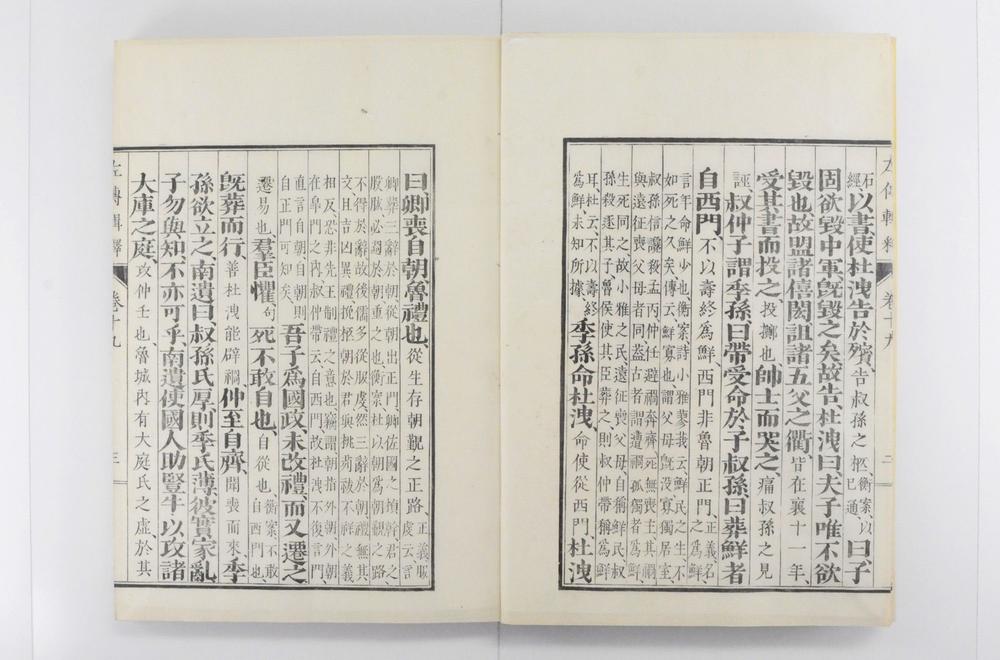 左傳輯釋 卷十九 二
石經以書、使杜洩告於殯、告叔孫之柩、衡案、以已通、曰、子
固欲毀中軍、既毀之矣、故告、杜洩曰、夫子唯不欲
毀也、故盟諸僖閎、詛諸五父之衢、皆在襄十一年、
受其書而投之、投擲也、帥士而哭之、痛叔孫之見
誣、叔仲子謂季孫曰、帶受命於子叔孫、曰、葬鮮者
自西門、不以壽終爲鮮西門非魯朝正門、正義、名之爲鮮
言年命鮮少也、衡案、詩小雅蓼莪云、鮮民之生、不
如死之久矣、傳云、鮮寡也、謂父母既沒、寡獨居室
叔孫信讒殺孟丙仲任、避禍奔齊、死無喪主、其禍
與遠征喪父母者同、蓋古者謂遺禍孤獨者爲鮮、
生死同之、故小雅之民、遠征喪父母、自稱鮮民、叔
孫殺逐其子、魯侯使其臣葬之、則叔仲帶稱爲鮮
耳、杜云、不以壽終爲鮮、未知所據、季孫命杜洩、命使從西門、杜洩
曰、卿喪自朝、魯禮也、從生存朝覲之正路、正義、服虔云、言
卿葬三辭於朝、從朝出正門、卿佐國之楨幹、君之
股肱、必過於朝、重之也、衡案、杜以朝爲朝覲之路
不得於辭、故後儒多從服虔、然三辭於朝、禮無其
文、且吉凶異禮、挽柩朝於君、與桃茢祓不祥之義
相反、恐非先王制禮之意也、竊謂朝指外朝、外朝
在皐門之內、叔仲帶云、自西門、故杜洩不復言門、
直言自朝、自朝則自正門可知矣、吾子爲國政、未改禮、而又遷之、
遷易也、羣臣懼句死、不敢自也、自從也、衡案、不敢自西門也、
既葬而行、善杜洩能辟禍、仲至自齊、聞喪而來、季
孫欲立之、南遺曰、叔孫氏厚、則季氏薄、彼實家亂、
子勿與知、不亦可乎、南遺使國人助豎牛、以攻諸
大庫之庭、攻仲壬也、魯城內有大庭氏之虛、於其
左傳輯釋 卷十九 三